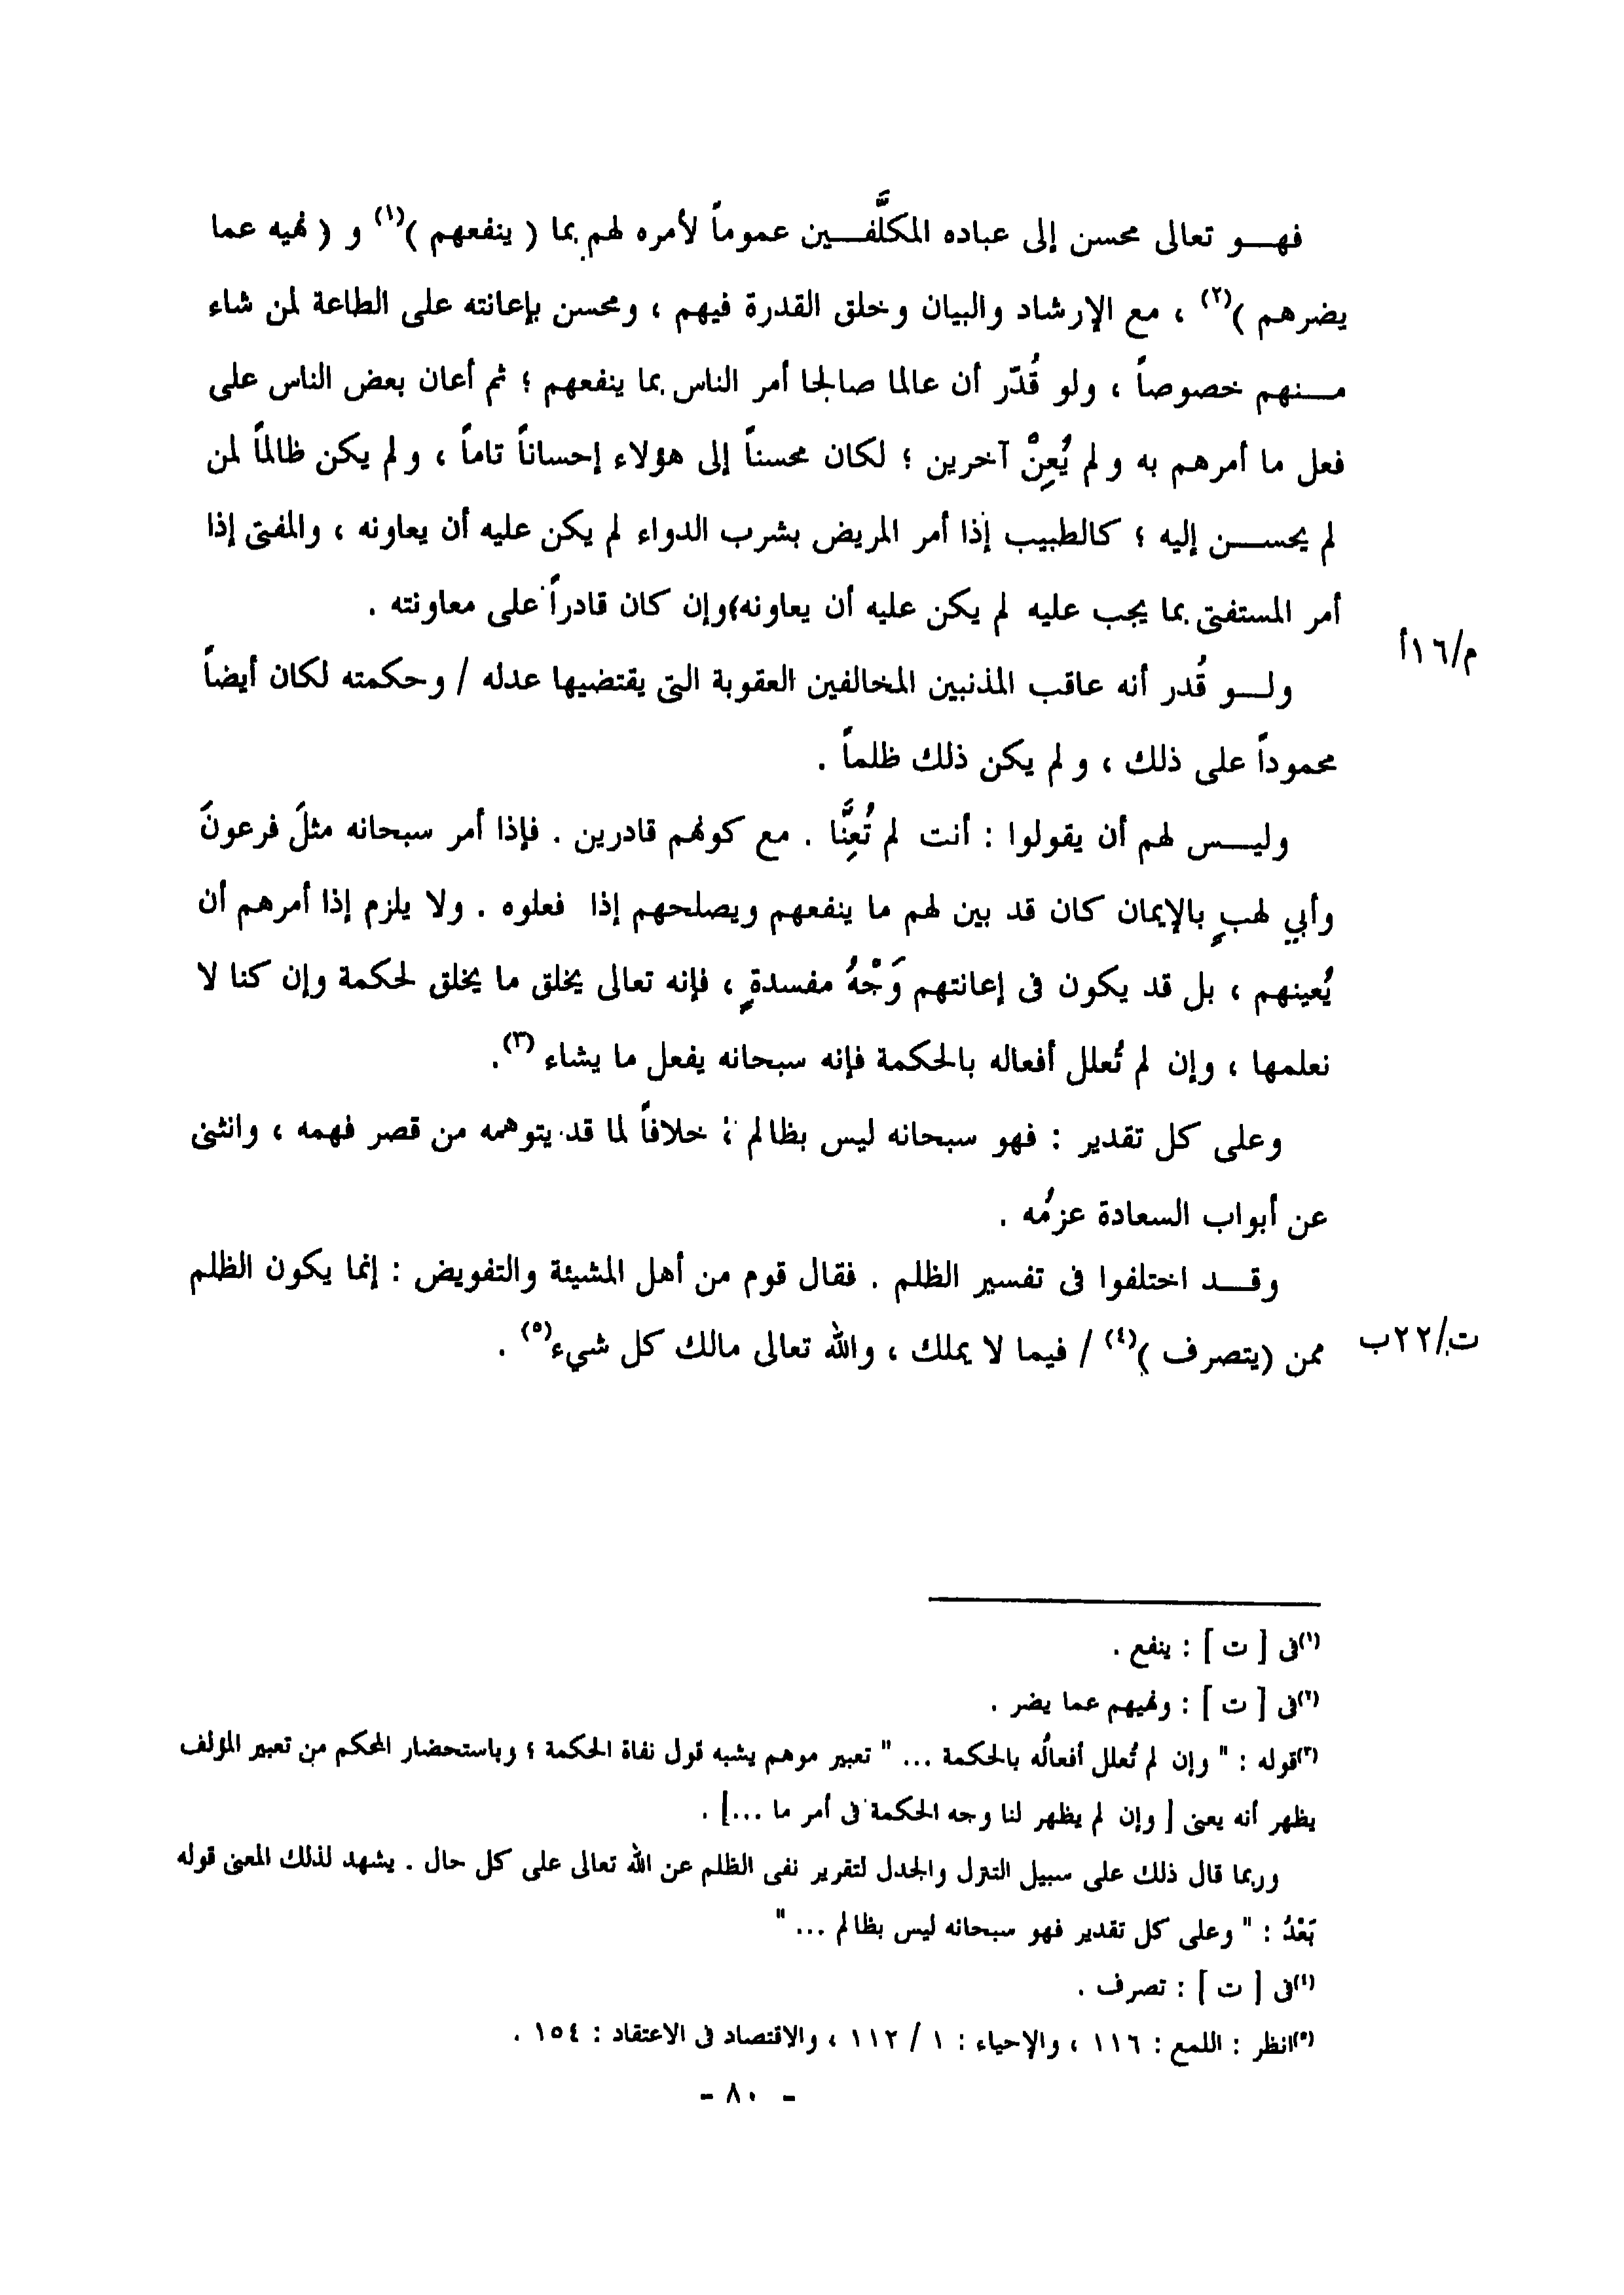 فهو تعالى محسن إلى عباده المكلَّفين عموماً لأمره لهم بما ( ينفعهم )(١) و ( نهيه عما
يضرهم )(٢) ، مع الإرشاد والبيان وخلق القدرة فيهم ، ومحسن بإعانته على الطاعة لمن شاء
منهم خصوصاً ، ولو قُدّر أن عالما صالحا أمر الناس بما ينفعهم ؛ ثم أعان بعض الناس على
فعل ما أمرهم به ولم يُعِنْ آخرين ؛ لكان محسناً إلى هؤلاء إحساناً تاماً ، ولم يكن ظالماً لمن
لم يحسن إليه ؛ كالطبيب إذا أمر المريض بشرب الدواء لم يكن عليه أن يعاونه ، والمفتى إذا
أمر المستفتى بما يجب عليه لم يكن عليه أن يعاونه؛وإن كان قادراً على معاونته .
م/١٦أ
ولو قُدر أنه عاقب المذنبين المخالفين العقوبة التى يقتضيها عدله / وحكمته لكان أيضاً
محموداً على ذلك ، ولم يكن ذلك ظلماً .
وليس لهم أن يقولوا : أنت لم تُعِنَّا . مع كونهم قادرين . فإذا أمر سبحانه مثلَ فرعونَ
وأبي لهبٍ بالإيمان كان قد بين لهم ما ينفعهم ويصلحهم إذا فعلوه . ولا يلزم إذا أمرهم أن
يُعينهم ، بل قد يكون فى إعانتهم وَجْهُ مفسدةٍ ، فإنه تعالى يخلق ما يخلق لحكمة وإن كنا لا
نعلمها ، وإن لم تُعلل أفعاله بالحكمة فإنه سبحانه يفعل ما يشاء (٣).
وعلى كل تقدير : فهو سبحانه ليس بظالم ؛ خلافاً لما قد يتوهمه من قصر فهمه ، وانثنى
عن أبواب السعادة عزمُه .
وقد اختلفوا فى تفسير الظلم . فقال قوم من أهل المشيئة والتفويض : إنما يكون الظلم
ممن (يتصرف )(٤) / فيما لا يملك ، والله تعالى مالك كل شيء(٥) .
ت/٢٢ب
(١)فى [ ت ] : ينفع .
(٢)فى [ ت ] : ونهيهم عما يضر .
(٣)قوله : " وإن لم تُعلل أفعالُه بالحكمة ... " تعبير موهم يشبه قول نفاة الحكمة ؛ وباستحضار المحكم من تعبير المؤلف
يظهر أنه يعنى [ وإن لم يظهر لنا وجه الحكمة فى أمر ما ...] .
وربما قال ذلك على سبيل التنزل والجدل لتقرير نفى الظلم عن الله تعالى على كل حال . يشهد لذلك المعنى قوله
بَعْدُ : " وعلى كل تقدير فهو سبحانه ليس بظالم ... "
(٤)فى [ ت ] : تصرف .
(٥)انظر : اللمع : ١١٦ ، والإحياء : ١ / ١١٢ ، والاقتصاد فى الاعتقاد : ١٥٤ .
- ٨٠ -